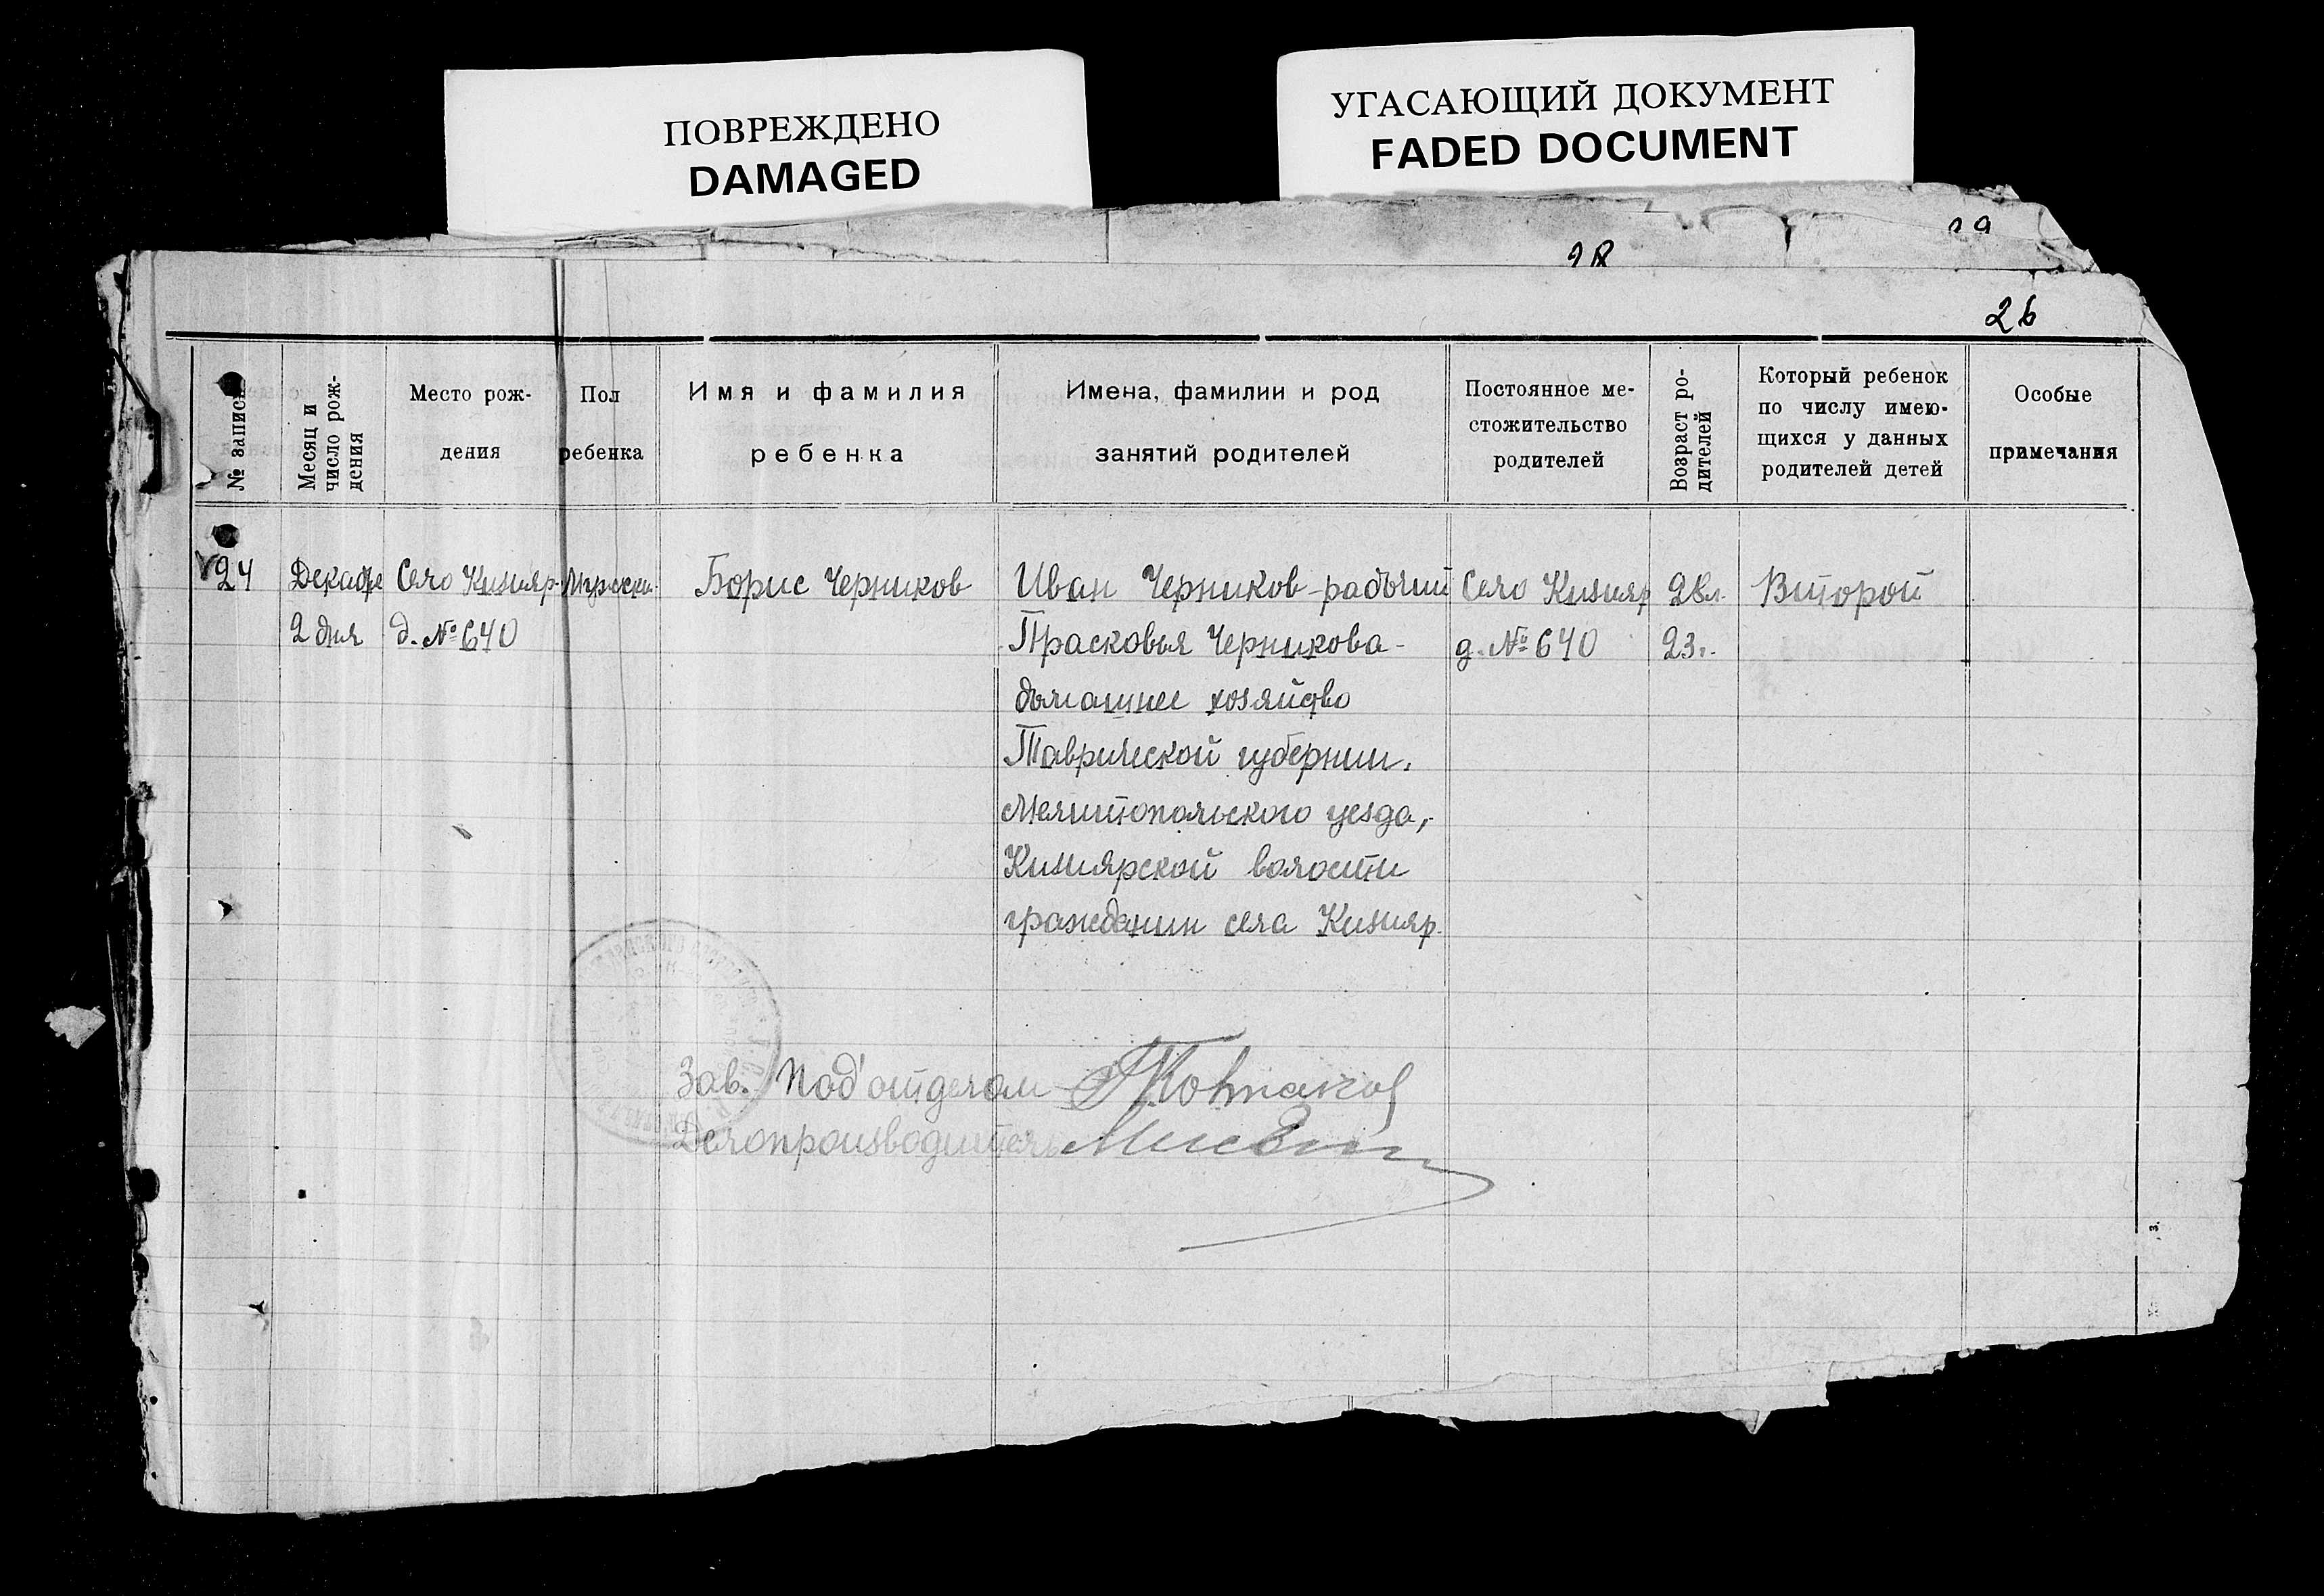 ПОВРЕЖДЕНО
DAMAGED
УГАСАЮЩИЙ ДОКУМЕНТ
FADED DOCUMENT
26
№ записи
Месяц и
число рож-
дения
Место рож-
дения
Пол
ребенка
Имя и фамилия
ребенка
Имена, фамилии и род
занятий родителей
Постоянное ме-
стожительство
родителей
Возраст ро-
дителей
Который ребенок
по числу имею-
щихся у данных
родителей детей
Особые
примечания
24 Декабре Село Кизияр. Мужски. Борис Черников Иван Черников - рабочий Село Кизияр 28л. Второй
2 дня д. № 640 Прасковья Черникова - д. № 640 23.
домашнее хозяйство
Таврической губернии,
Мелитопольского уезда,
Кизиярской волости
гражданин села Кизияр.
Зав. Под'отделом
Делопроизводитель